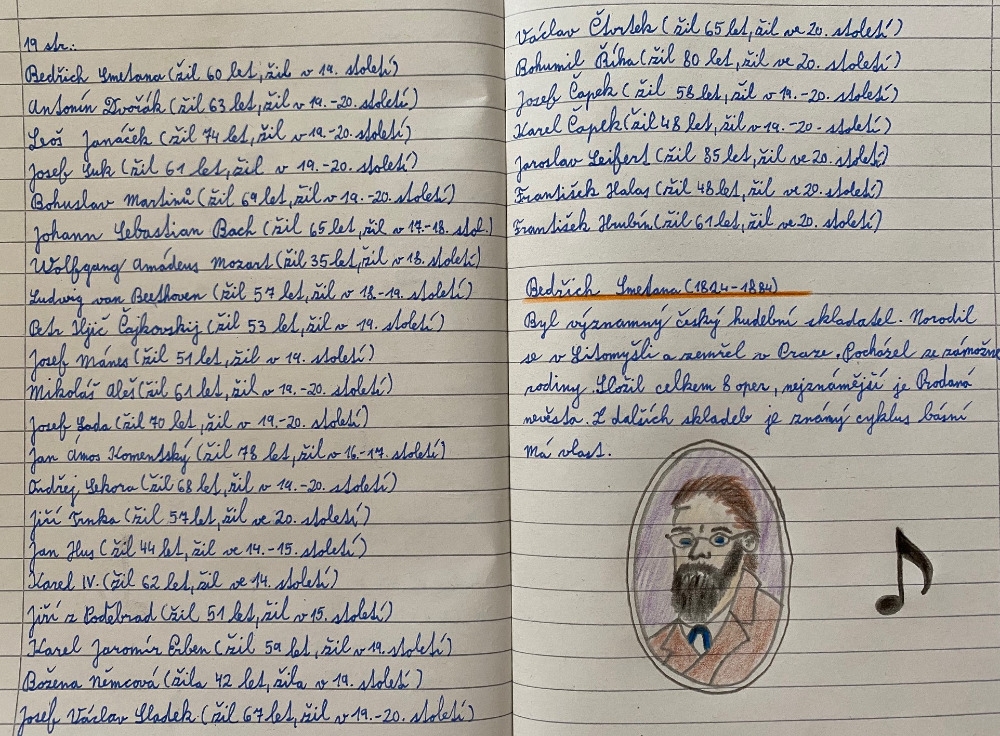 19 str.:
Bedřich Smetana (žil 60 let, žil v 19. století)
Antonín Dvořák (žil 63 let, žil v 19.-20. století)
Leoš Janáček (žil 74 let, žil v 19.-20. století)
Josef Suk (žil 61 let, žil v 19.-20. století)
Bohuslav Martinů (žil 69 let, žil v 19.-20. století)
Johann Sebastian Bach (žil 65 let, žil v 17.-18. stol.)
Wolfgang Amádeus Mozart (žil 35 let, žil v 18. století)
Ludwig van Beethoven (žil 57 let, žil v 18.-19. století)
Petr Iljič Čajkovskij (žil 53 let, žil v 19. století)
Josef Mánes (žil 51 let, žil v 19. století)
Mikoláš Aleš (žil 61 let, žil v 19.-20. století)
Josef Lada (žil 70 let, žil v 19.-20. století)
Jan Ámos Komentský (žil 78 let, žil v 16-17. století)
Ondřej Sekora (žil 68 let, žil v 19.-20. století)
Jiří Trnka (žil 57 let, žil ve 20. století)
Jan Hus (žil 44 let, žil ve 14.-15. století)
Karel IV. (žil 62 let, žil ve 14. století)
Jiří z Poděbrad (žil 51 let, žil v 15. století)
Karel Jaromír Erben (žil 59 let, žil v 19. století)
Božena Němcová (žila 42 let, žila v 19. století)
Josef Václav Sladek (žil 67 let, žil v 19.-20. století)
Václav Čtvrtek (žil 65 let, žil ve 20. století)
Bohumil Říha (žil 80 let, žil ve 20. století)
Josef Čapek (žil 58 let, žil v 19.-20. století)
Karel Čapek (žil 48 let, žil v 19.-20. století)
Jaroslav Seifert (žil 85 let, žil ve 20. století)
František Halas (žil 48 let, žil ve 20. století)
František Hrubín (žil 61 let, žil ve 20. století)
Bedřich Smetana (1824-1884)
Byl významný český hudební skladatel. Narodil
se v Litomyšli a zemřel v Praze. Pocházel ze zámožné
rodiny. Složil celkem 8 oper, nejznámější je Prodaná
nevěsta. Z dalších skladeb je známý cyklus básní
Má vlast.